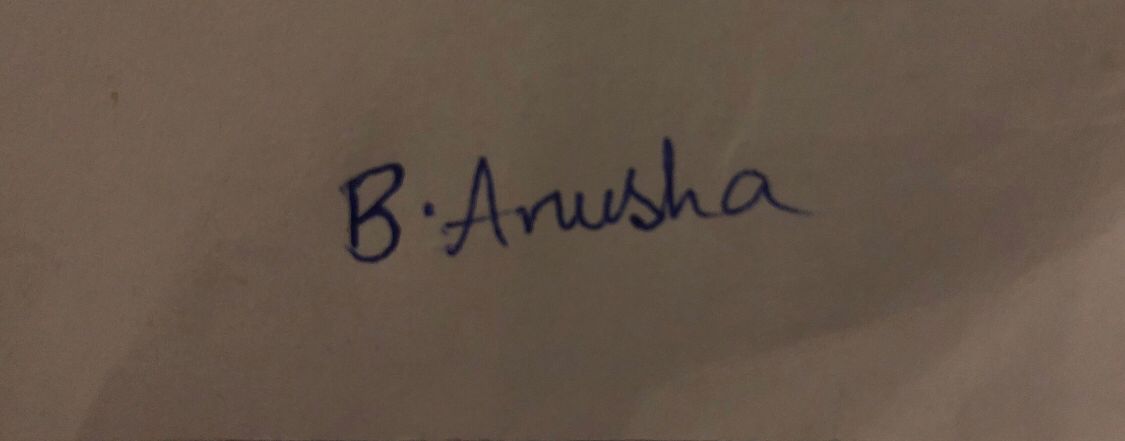 B. Anusha